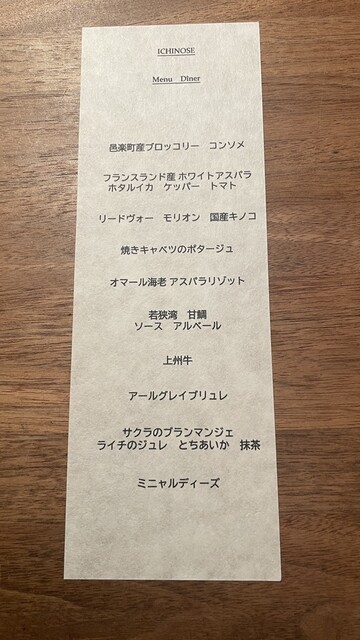 ICHINOSE
Menu Dîner
邑楽町産ブロッコリー コンソメ
フランスランド産 ホワイトアスパラ
ホタルイカ ケッパー トマト
リードヴォー モリオン 国産キノコ
焼きキャベツのポタージュ
オマール海老 アスパラリゾット
若狭湾 甘鯛
ソース アルベール
上州牛
アールグレイブリュレ
サクラのブランマンジェ
ライチのジュレ とちあいか 抹茶
ミニャルディーズ